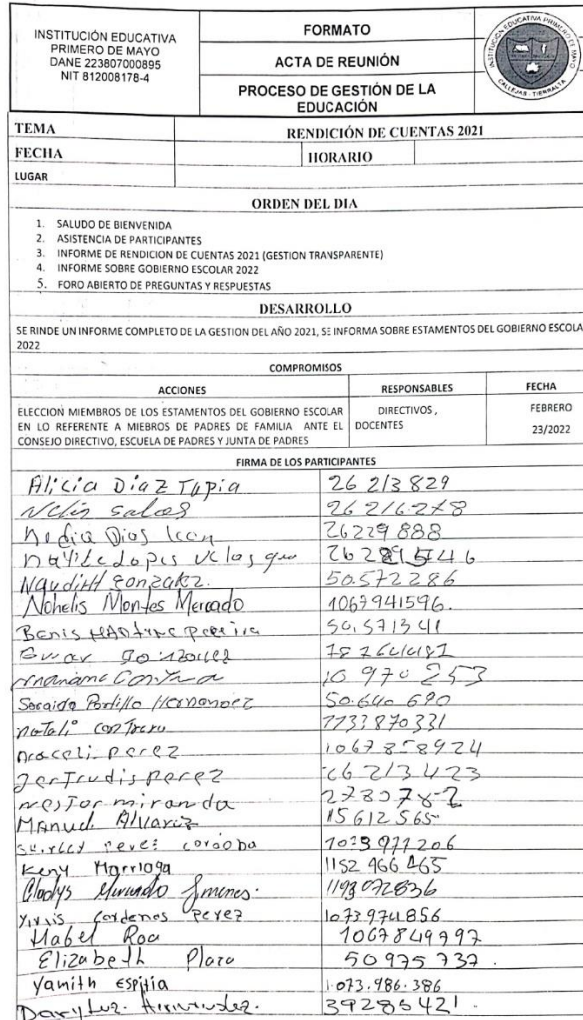 INSTITUCIÓN EDUCATIVA
PRIMERO DE MAYO
DANE 223807000895
NIT 812008178-4
FORMATO
ACTA DE REUNIÓN
PROCESO DE GESTIÓN DE LA
EDUCACIÓN
INSTITUCIÓN EDUCATIVA PRIMERO DE MAYO
CALLEJAS - TIERRALTA
TEMA RENDICIÓN DE CUENTAS 2021
FECHA HORARIO
LUGAR
ORDEN DEL DIA
1. SALUDO DE BIENVENIDA
2. ASISTENCIA DE PARTICIPANTES
3. INFORME DE RENDICION DE CUENTAS 2021 (GESTION TRANSPARENTE)
4. INFORME SOBRE GOBIERNO ESCOLAR 2022
5. FORO ABIERTO DE PREGUNTAS Y RESPUESTAS
DESARROLLO
SE RINDE UN INFORME COMPLETO DE LA GESTION DEL AÑO 2021, SE INFORMA SOBRE ESTAMENTOS DEL GOBIERNO ESCOLA
2022
COMPROMISOS
ACCIONES RESPONSABLES FECHA
ELECCION MIEMBROS DE LOS ESTAMENTOS DEL GOBIERNO ESCOLAR
EN LO REFERENTE A MIEBROS DE PADRES DE FAMILIA ANTE EL
CONSEJO DIRECTIVO, ESCUELA DE PADRES Y JUNTA DE PADRES
DIRECTIVOS ,
DOCENTES
FEBRERO
23/2022
FIRMA DE LOS PARTICIPANTES
Alicia Diaz Tapia 26 213 829
Nelis salas 26 216 278
Nedia Dios 26229 888
26289546
Naudith gonzalez. 50.572286
Nohelis Montes Mercado 1067941596.
50.571341
10 970 253
Soraida Portillo Hernandez 50.640 690
natali contrera 1133870331
araceli perez 1067858924
gertrudis perez 26 213 423
nestor miranda
Manuel Alvarez 15612565
perez cordoba 1073971206
Keny Marrioga 1152 466 465
Gladys Jimenes. 1193072836
Yirnis Cardenas Perez 1073974856
Mabel Roa 1067849797
Elizabeth Plaza 50975737.
Yanith Espitia 1.073.986.386
Daryluz. 39285421.